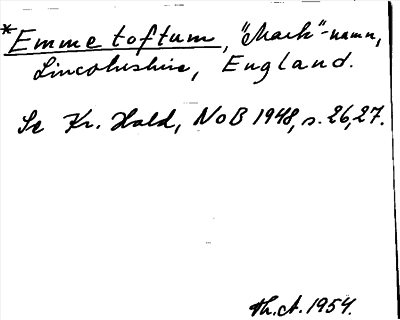 *Emme toftum, "Mark"-namn,
Lincolnshire, England.
Se Kr. Hald, NoB 1948, s. 26, 27.
Th. A. 1954.